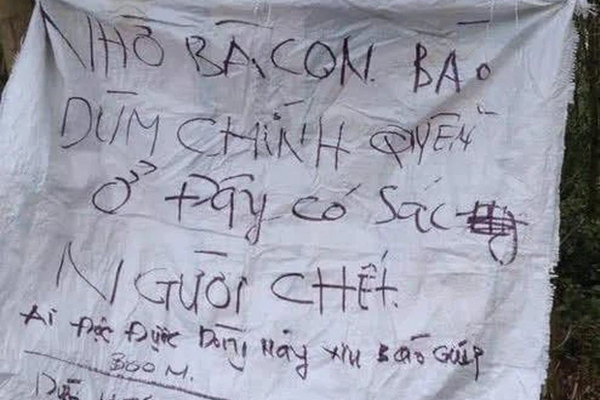 NHỜ BÀ CON. BÁO
DÙM CHÍNH QUYỀN
Ở ĐÂY CÓ SÁC
NGƯỜI CHẾT.
Ai Đọc Được Dòng Này xin Báo Giúp
300 M.